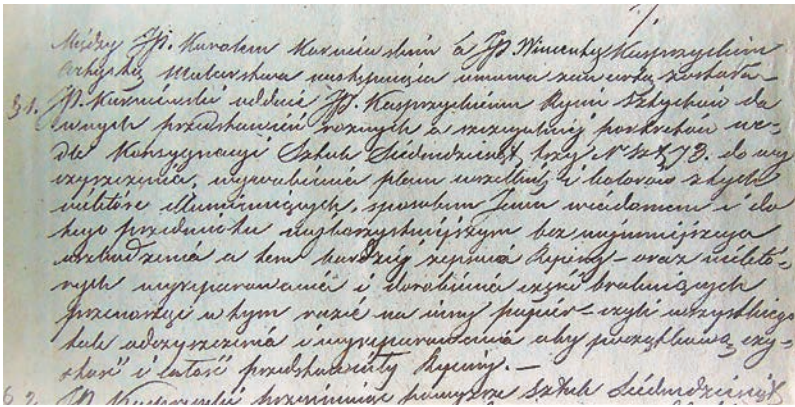 Między JP. Karolem Karniewskim a JP Wincentym Kasprzyckim
Artystą Malarstwa następująca umowa zawartą została –
§ 1. JP. Karniewski oddaie JP. Kasprzyckiemu Rycin Sztychów da
wnych przedstawień rożnych a szczegulniej portretów we-
dle Konsygnacyi Sztuk Siedmdziesiąt trzy N 73. do wy
czyszczenia, wywabienia plam wszelkich i kolorów złych
niektóre illuminuiących, sposobem Jemu wiadomem i do
tego przedmiotu naykorzystnieyszym bez naymnieyszego
uszkodzenia a tem bardziey zepsucia Ryciny – oraz niektó-
rych wyreparowania i dorobienia części brakuiących
przenosząc w tym razie na inny papier – czyli wszystkiego
tak odczyszczenia i wyreparowania aby początkową czy-
stość i całość przedstawiały Ryciny. –
§ 2. JP Kasprzycki przyimuiąc powyższe sztuk Siedmdziesiąt